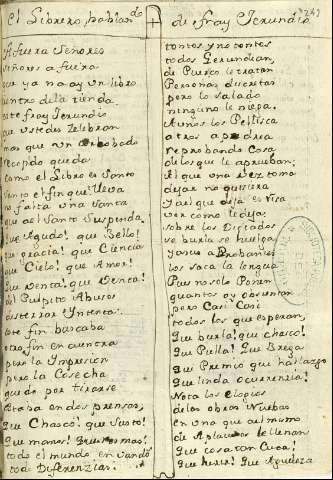 El Librero, hablando + de fray Jerundio
Afuera Señores
Señores a fuera
que ya no ay un libro
dentro de la tienda
este fray Jerundio
que ustedes Zelebran
mas que un Robado
recojido queda
como el Libro es Santo
Santo el fin que lleva
no falta una Santa
que a el Santo Suspenda
que Agudo! que Bello!
que gracia! que Ciencia
que Cielo! que Amor!
que Renta! que Venta!
del Pulpito Abusos
desterrar Yntenta
este fin buscaba
otro fin encuentra
pero la Impresion
pero la Cosecha
que do por tirarse
estaba en dos prensas,
que Chasco! que Susto!
que manos! que mas!
todo el mundo en vando
Diferenzias!
tontos y no tontos
todos Gerundian,
de Puerco le tratan
Personas discretas
pero lo Salado
ninguno le niega.
A unos los Pellisca
a otros apedrea
reprobando Cosa
de los que le aprueban,
el que una vez toma
dejar no quisiera
y a el que deja es Risa
ver como le deja;
sobre los Dictados
se burla se huelga
los saca la lengua
Pues no solo Ponen
quantos oy
pero Casi Casi
todos los que esperan,
que burla! que chasco!
que Pulla! Que Brega
que Premio que hallazgo
que linda ocurrenzia!
Nota los elogios
de las obras Nuebas
en una que al mismo
de Aplausos le llenan
que cosa tan Cuca!
que Agudeza